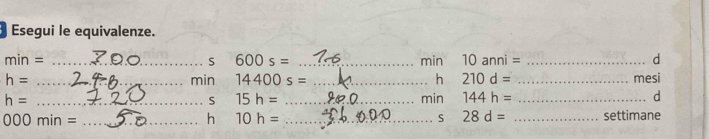 Esegui le equivalenze.
min = 300 s 600 s = 10 min 10 anni = d
h = min 14400 s = 4 h 210 d = mesi
h = 720 s 15 h = 900 min 144 h = d
000 min = 50 h 10 h = 36000 s 28 d = settimane